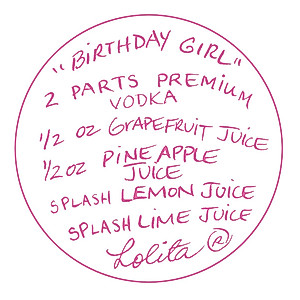 "BIRTHDAY GIRL"
2 PARTS PREMIUM
VODKA
1/2 OZ GRAPEFRUIT JUICE
1/2 OZ PINEAPPLE
JUICE
SPLASH LEMON JUICE
SPLASH LIME JUICE
Lolita ®